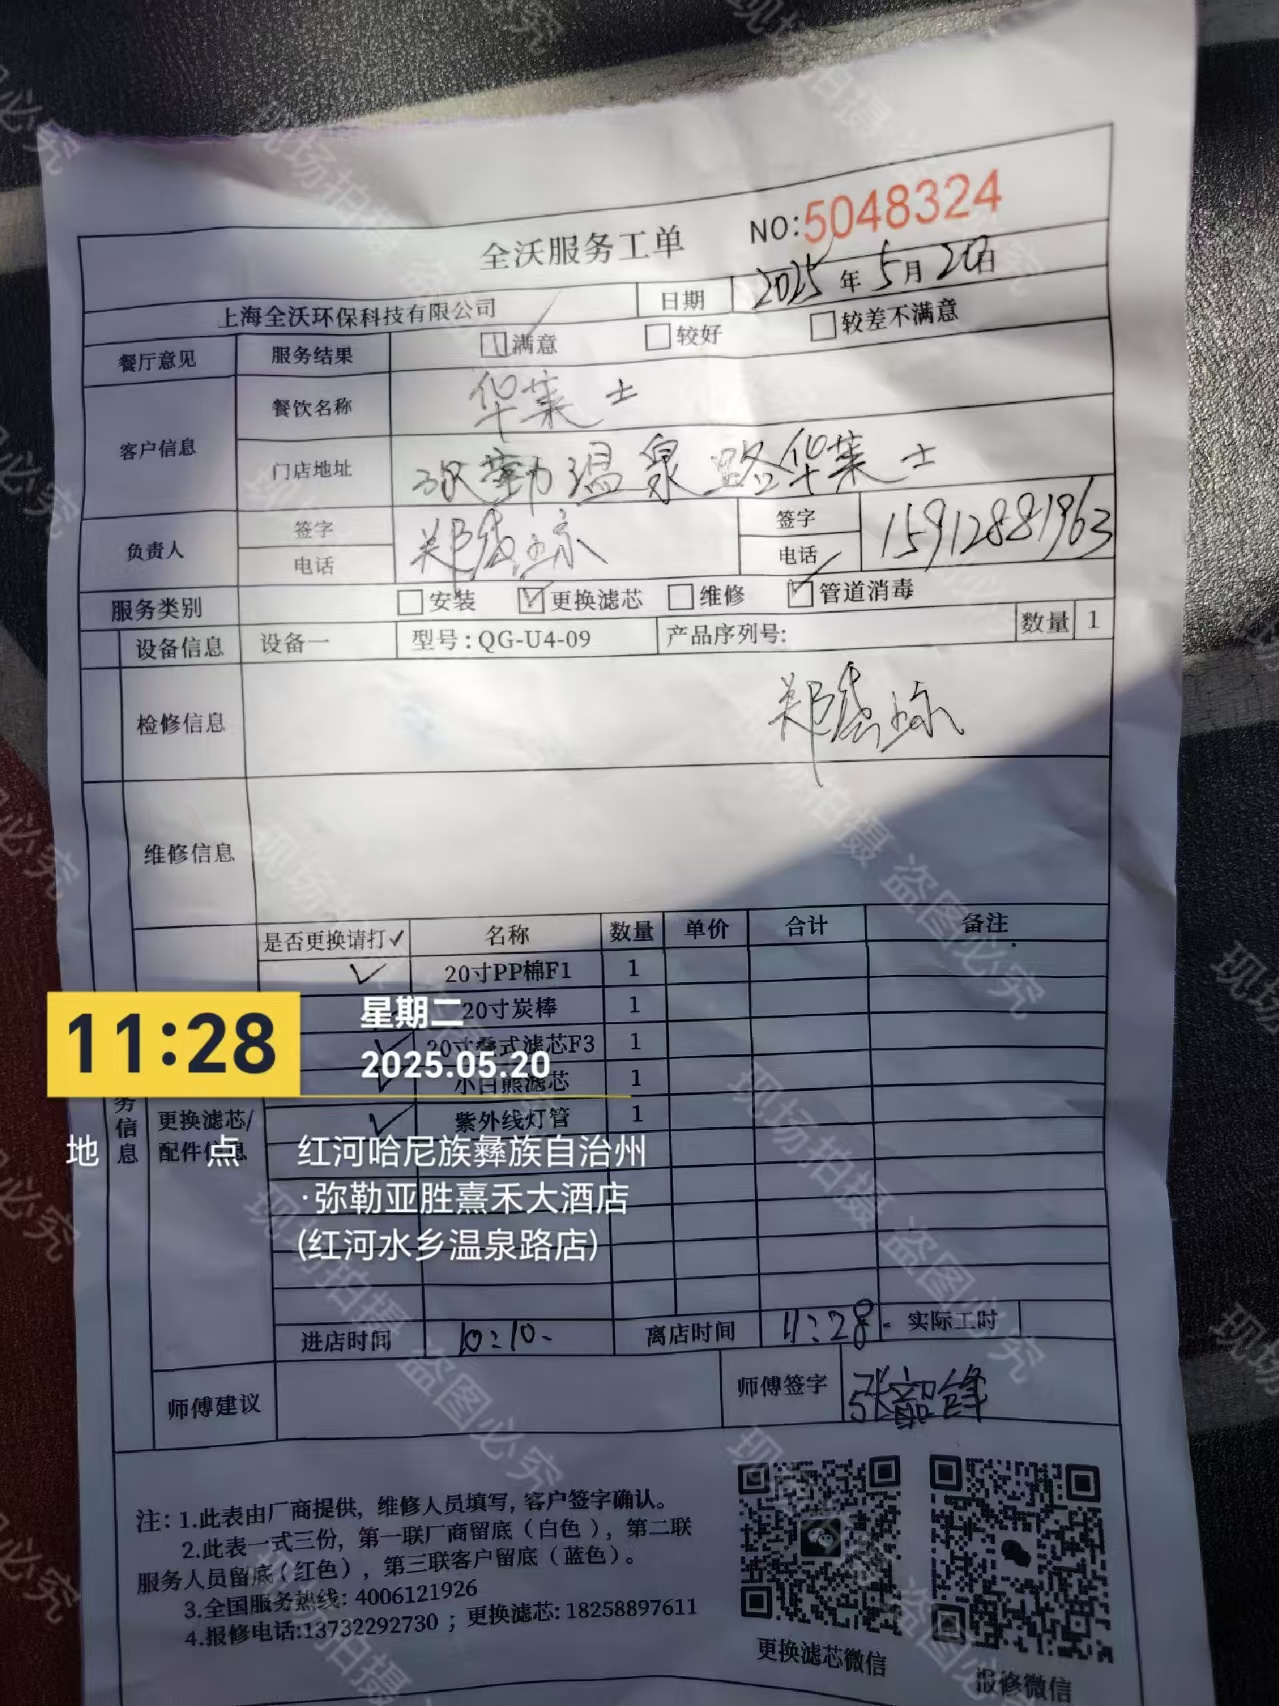 全沃服务工单
NO:5048324
上海全沃环保科技有限公司 日期 2025年5月20日
餐厅意见 服务结果 满意 较好 较差不满意
客户信息 餐饮名称 华莱士
门店地址 弥勒温泉路华莱士
负责人 签字 电话 签字 电话 15912881963
服务类别 安装 更换滤芯 维修 管道消毒
设备信息 设备一 型号:QG-U4-09 产品序列号: 数量 1
检修信息
维修信息
是否更换请打✓ 名称 数量 单价 合计 备注
✓ 20寸PP棉F1 1
20寸炭棒 1
20寸叠式滤芯F3 1
小白熊滤芯 1
✓ 紫外线灯管 1
务信息
更换滤芯/
配件信息
11:28
星期二
2025.05.20
地点 红河哈尼族彝族自治州
·弥勒亚胜熹禾大酒店
(红河水乡温泉路店)
进店时间 10:10 离店时间 11:28 实际工时
师傅建议 师傅签字 张韶锋
注: 1.此表由厂商提供, 维修人员填写, 客户签字确认。
2.此表一式三份, 第一联厂商留底（白色）, 第二联
服务人员留底（红色）, 第三联客户留底（蓝色）。
3.全国服务热线: 4006121926
4.报修电话:13732292730 ; 更换滤芯: 18258897611
更换滤芯微信
报修微信
现场拍摄 盗图必究